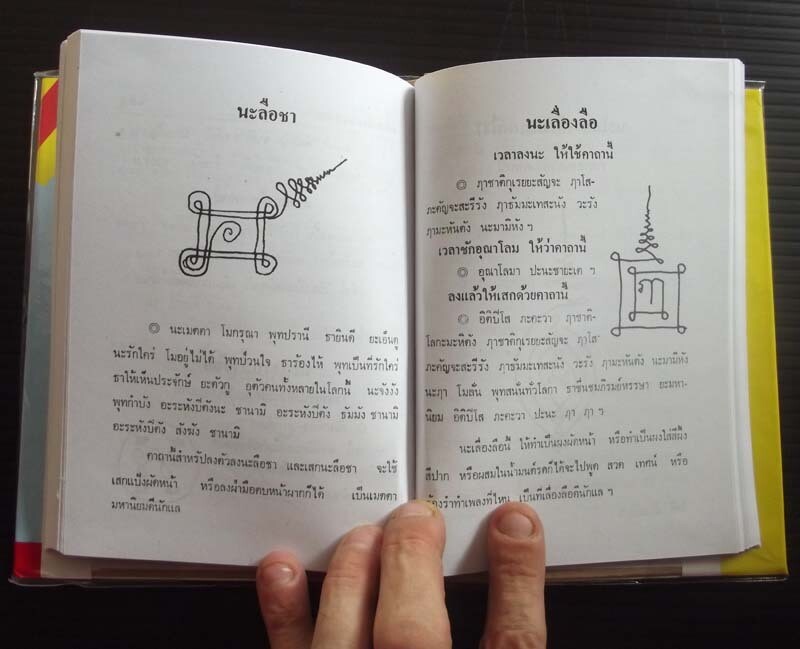 นะลือชา
๏ นะเมตตา โมกรุณา พุทปรานี ธายินดี ยะเอ็นดู
นะรักใคร่ โมอยู่ไม่ได้ พุทป่วนใจ ธาร้องไห้ พุทเป็นที่รักใคร่
ธาให้เห็นประจักษ์ ยะตัวกู อุตัวคนทั้งหลายในโลกนี้ นะจังงัง
พุทกำบัง อะระหังบีตังนะ ชานามิ อะระหังบีตัง ธัมมัง ชานามิ
อะระหังบีตัง สังฆัง ชานามิ
คาถานี้สำหรับลงตัวลงนะลือชา และเสกนะลือชา จะใช้
เสกแป้งผัดหน้า หรือลงฝ่ามือตบหน้าผากก็ได้ เป็นเมตตา
มหานิยมดีนักแล
นะเลื่องลือ
เวลาลงนะ ให้ใช้คาถานี้
๏ ภฺาชาติกุเรยยะสัญจะ ภฺาโส-
ภะคัญจะสะรีรัง ภฺาธัมมะเทสะนัง วะรัง
ภฺามะหันตัง นะมามิหัง ฯ
เวลาชักอุณาโลม ให้ว่าคาถานี้
๏ อุณาโลมา ปะนะชายะเต ฯ
ลงแล้วให้เสกด้วยคาถานี้
๏ อิติปิโส ภะคะวา ภฺาชาติ-
โลกะมะหิตัง ภฺาชาติกุเรยยะสัญจะ ภฺาโส-
ภะคัญจะสะรีรัง ภฺาธัมมะเทสะนัง วะรัง ภฺามะหันตัง นะมามิหัง
นะภฺา โมลั่น พุทสนั่นทั่วโลกา ธาชื่นชมภิรมย์หรรษา ยะมหา-
นิยม อิติปิโส ภะคะวา ปะนะ ภฺา ภฺา ฯ
นะเลื่องลือนี้ ให้ทำเป็นผงผัดหน้า หรือทำเป็นผงใส่สีผึ้ง
สีปาก หรือผสมในน้ำมันรตก็ได้จะไปพูด สวด เทศน์ หรือ
ร้องรำทำเพลงที่ไหน เป็นที่เลื่องลือดีนักแล ฯ